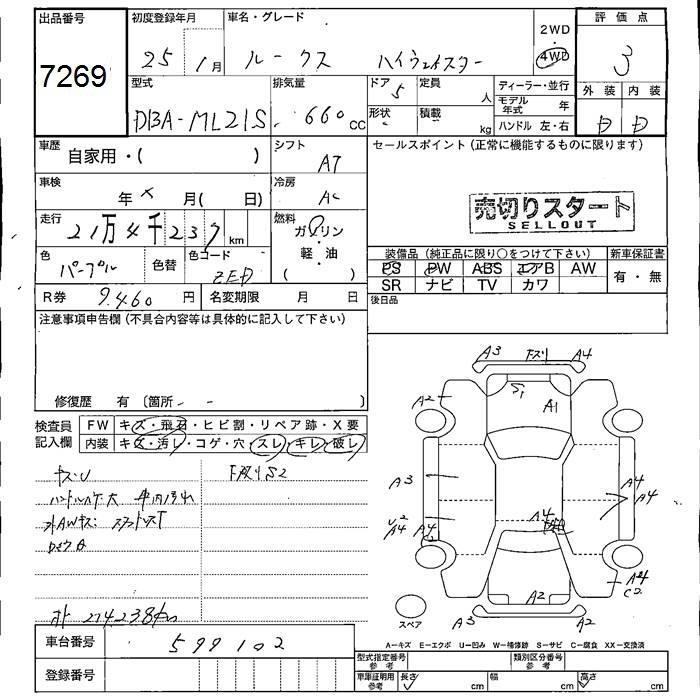 出品番号
7269
初度登録年月
25 1月
車名・グレード
ルークス ハイウェイスター
2WD
・
4WD
評価点
3
外装 内装
D D
型式
DBA-ML21S
排気量
660 cc
ドア 5
定員 人
形状
積載 kg
ディーラー・並行
モデル年式 年
ハンドル 左・右
車歴
自家用・( )
シフト
AT
セールスポイント (正常に機能するものに限ります)
車検
年 × 月( 日)
冷房
AC
売切りスタート
SELLOUT
走行
21万4千237km
燃料
ガソリン
・
軽・油
( )
色
パープル
色替
色コード
ZED
装備品 (純正品に限り○をつけて下さい)
新車保証書
PS PW ABS エアB AW
SR ナビ TV カワ
有・無
R券
9.460 円
名変期限 月 日
後日品
注意事項申告欄 (不具合内容等は具体的に記入して下さい)
修復歴 有 〔箇所・ -
検査員
記入欄
FW キズ・飛石・ヒビ割・リペア跡・X要
内装 キズ・汚レ・コゲ・穴・スレ・キレ・破レ
キズU
オド 214238km
車台番号
599102
登録番号
A3 A4
A2
S1
A1
A3
A4
A4
A4
A4
A4
A2
A4
C2
A3 A2
スペア
A－キズ E－エクボ U－凹み W－補修跡 S－サビ C－腐食 XX－交換済
型式指定番号
参考
類別区分番号
参考
車庫証明用
参考
長さ cm
幅 cm
高さ cm